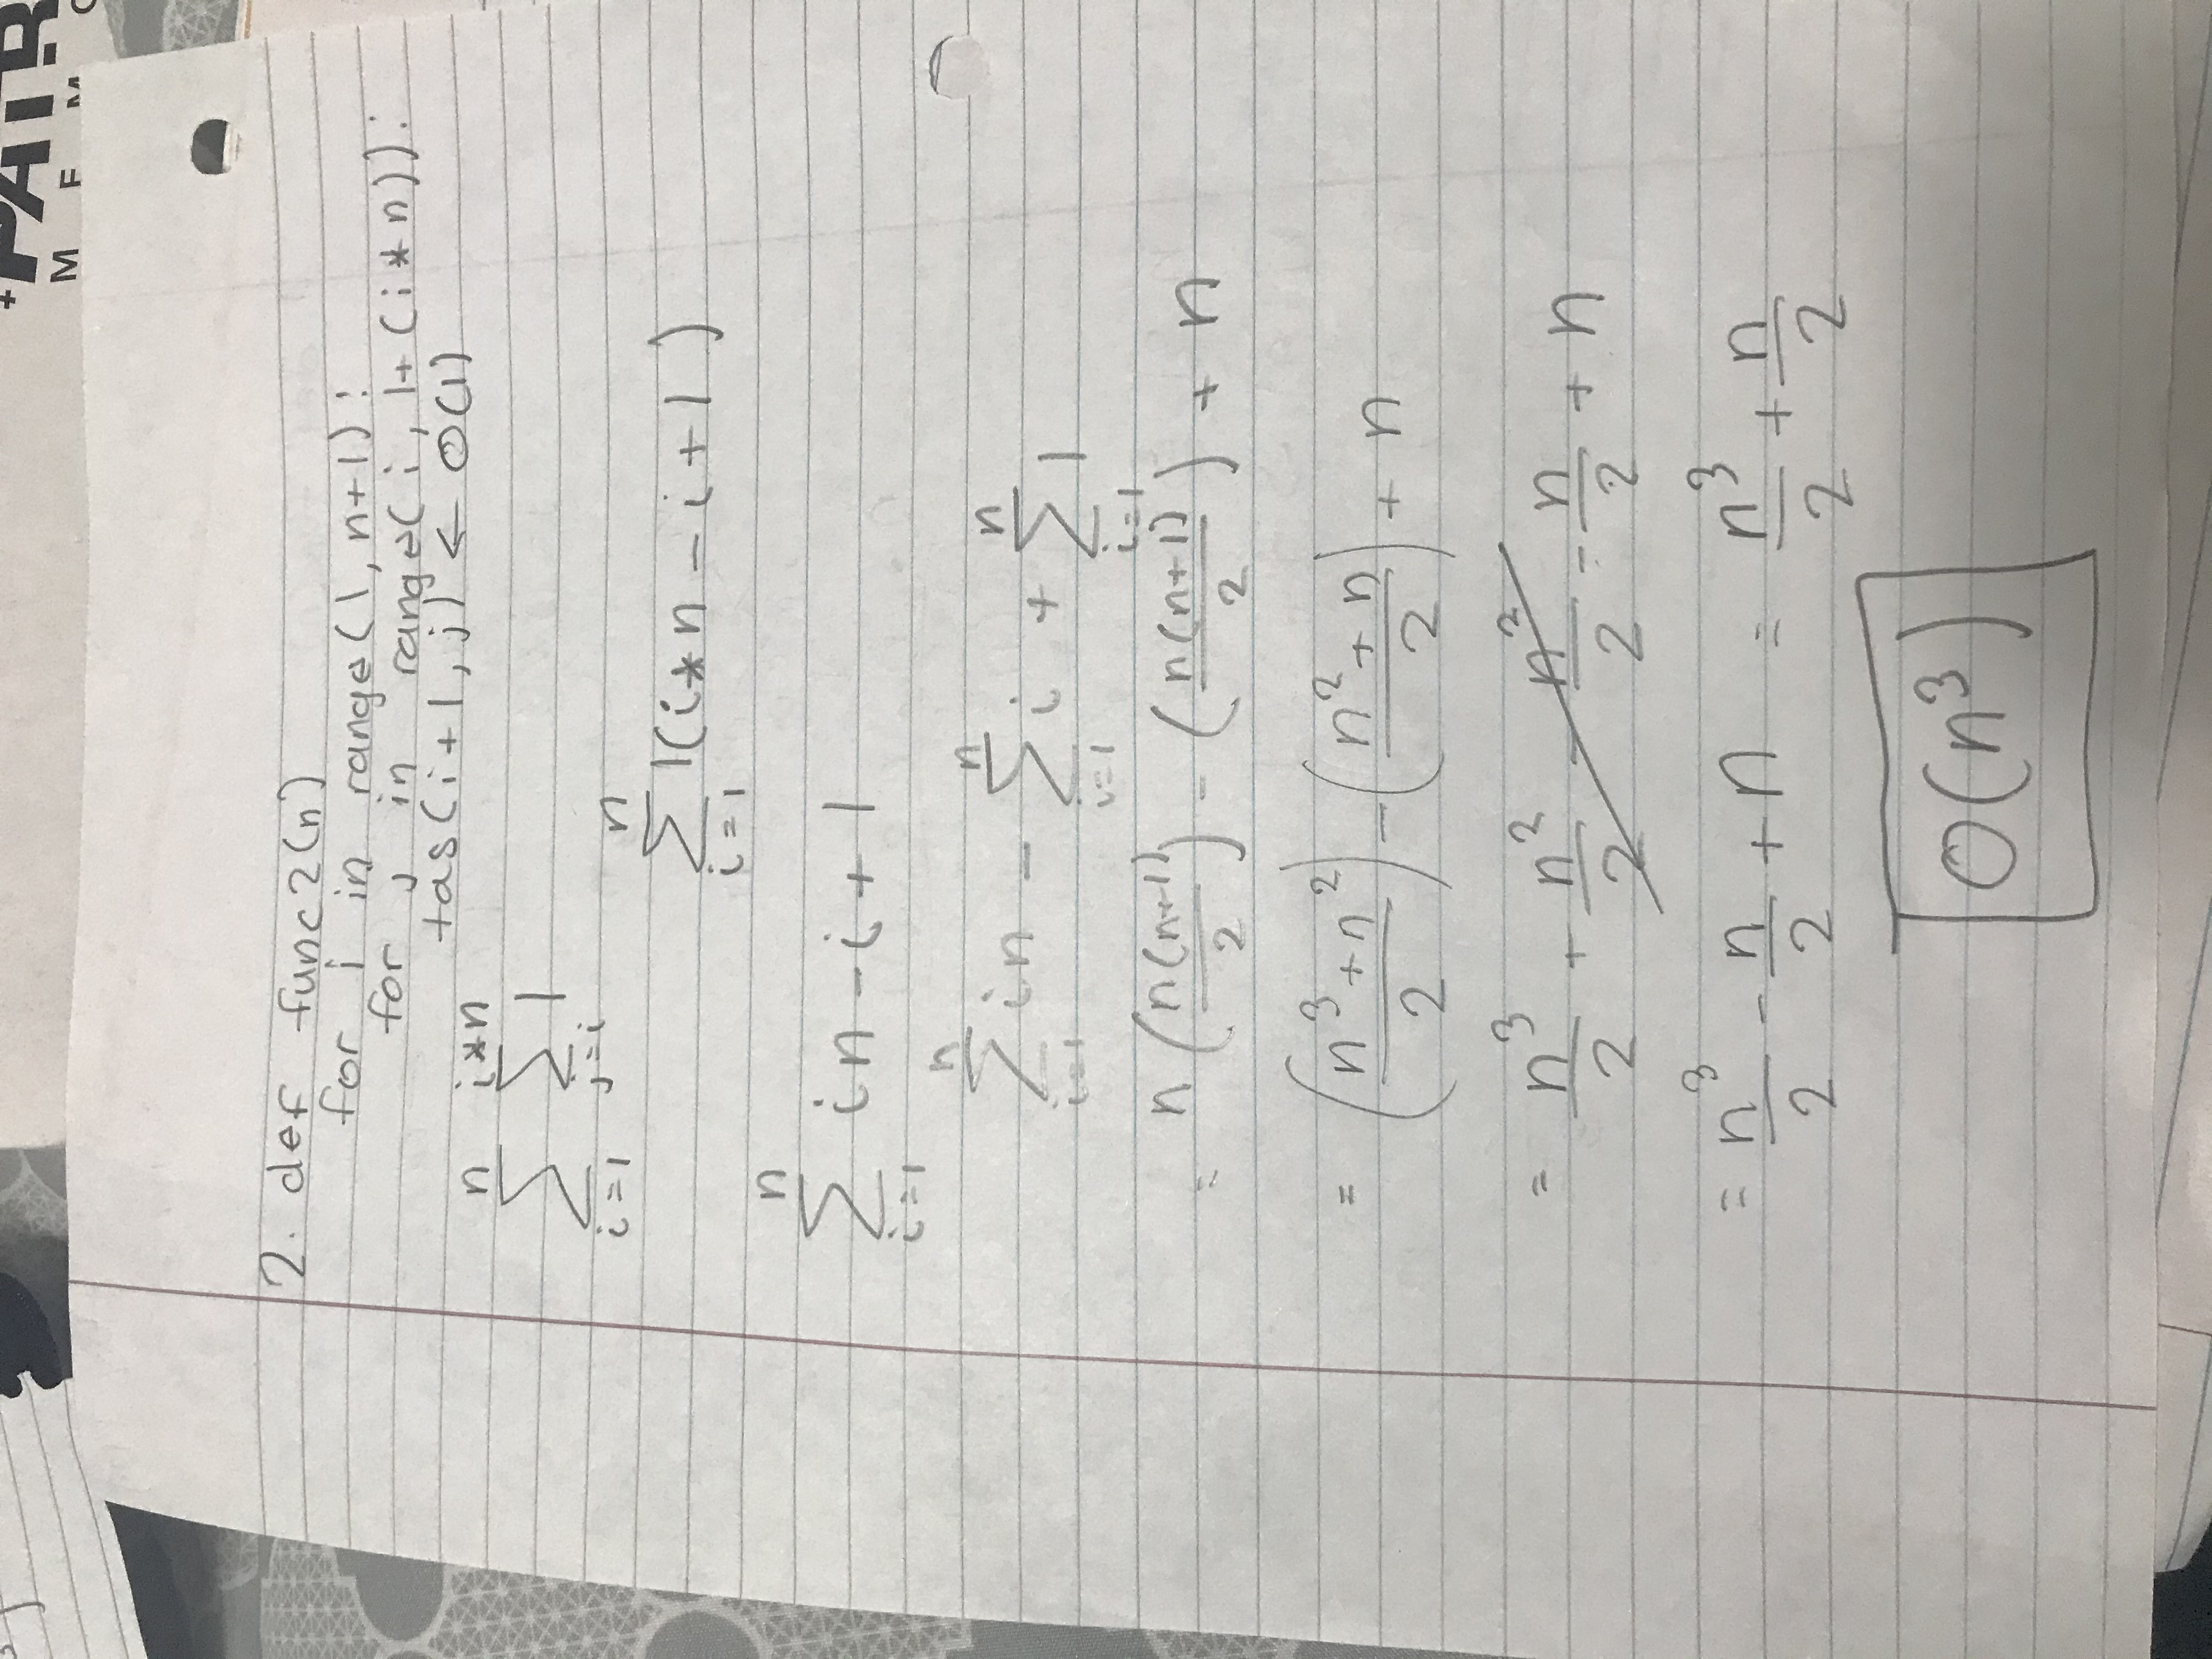 PATR
M E M
2. def func2(n)
for i in range(1, n+1):
for j in range(i, 1+(i*n)):
tas(i+1, j) ← O(1)
n i*n
∑ ∑ 1
i=1 j=i
n
∑ 1(i*n - i + 1)
i=1
n
∑ in - i + 1
i=1
n n n
∑ in - ∑ i + ∑ 1
i=1 i=1 i=1
= n (n(n+1)/2) - (n(n+1)/2) + n
= ((n³+n²)/2) - ((n²+n)/2) + n
= n³/2 + n²/2 - n²/2 - n/2 + n
= n³/2 - n/2 + n = n³/2 + n/2
O(n³)